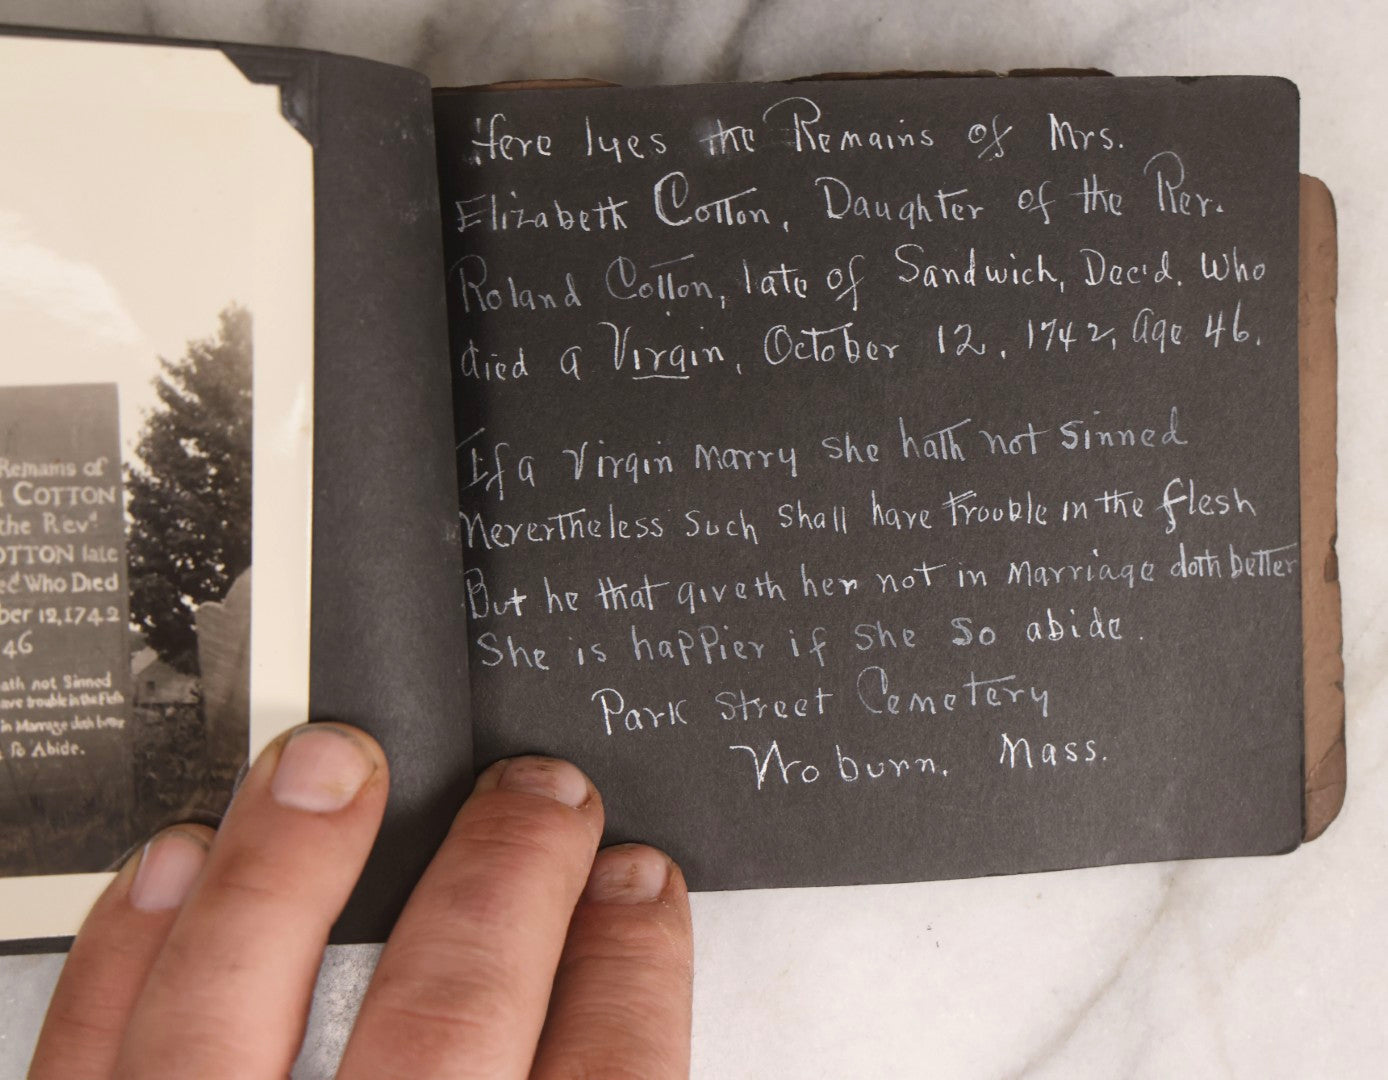 Remains of
COTTON
the Revd
OTTON late
Who Died
ber 12, 1742
46
ath not Sinned
ave trouble in the Flesh
in Marriage doth better
So Abide.
Here lyes the Remains of Mrs.
Elizabeth Cotton, Daughter of the Rev.
Roland Cotton, late of Sandwich, Dec'd. Who
died a Virgin, October 12, 1742, Age 46.
If a Virgin marry she hath not sinned
Nevertheless such shall have trouble in the flesh
But he that giveth her not in Marriage doth better
She is happier if she so abide.
Park Street Cemetery
Woburn. Mass.